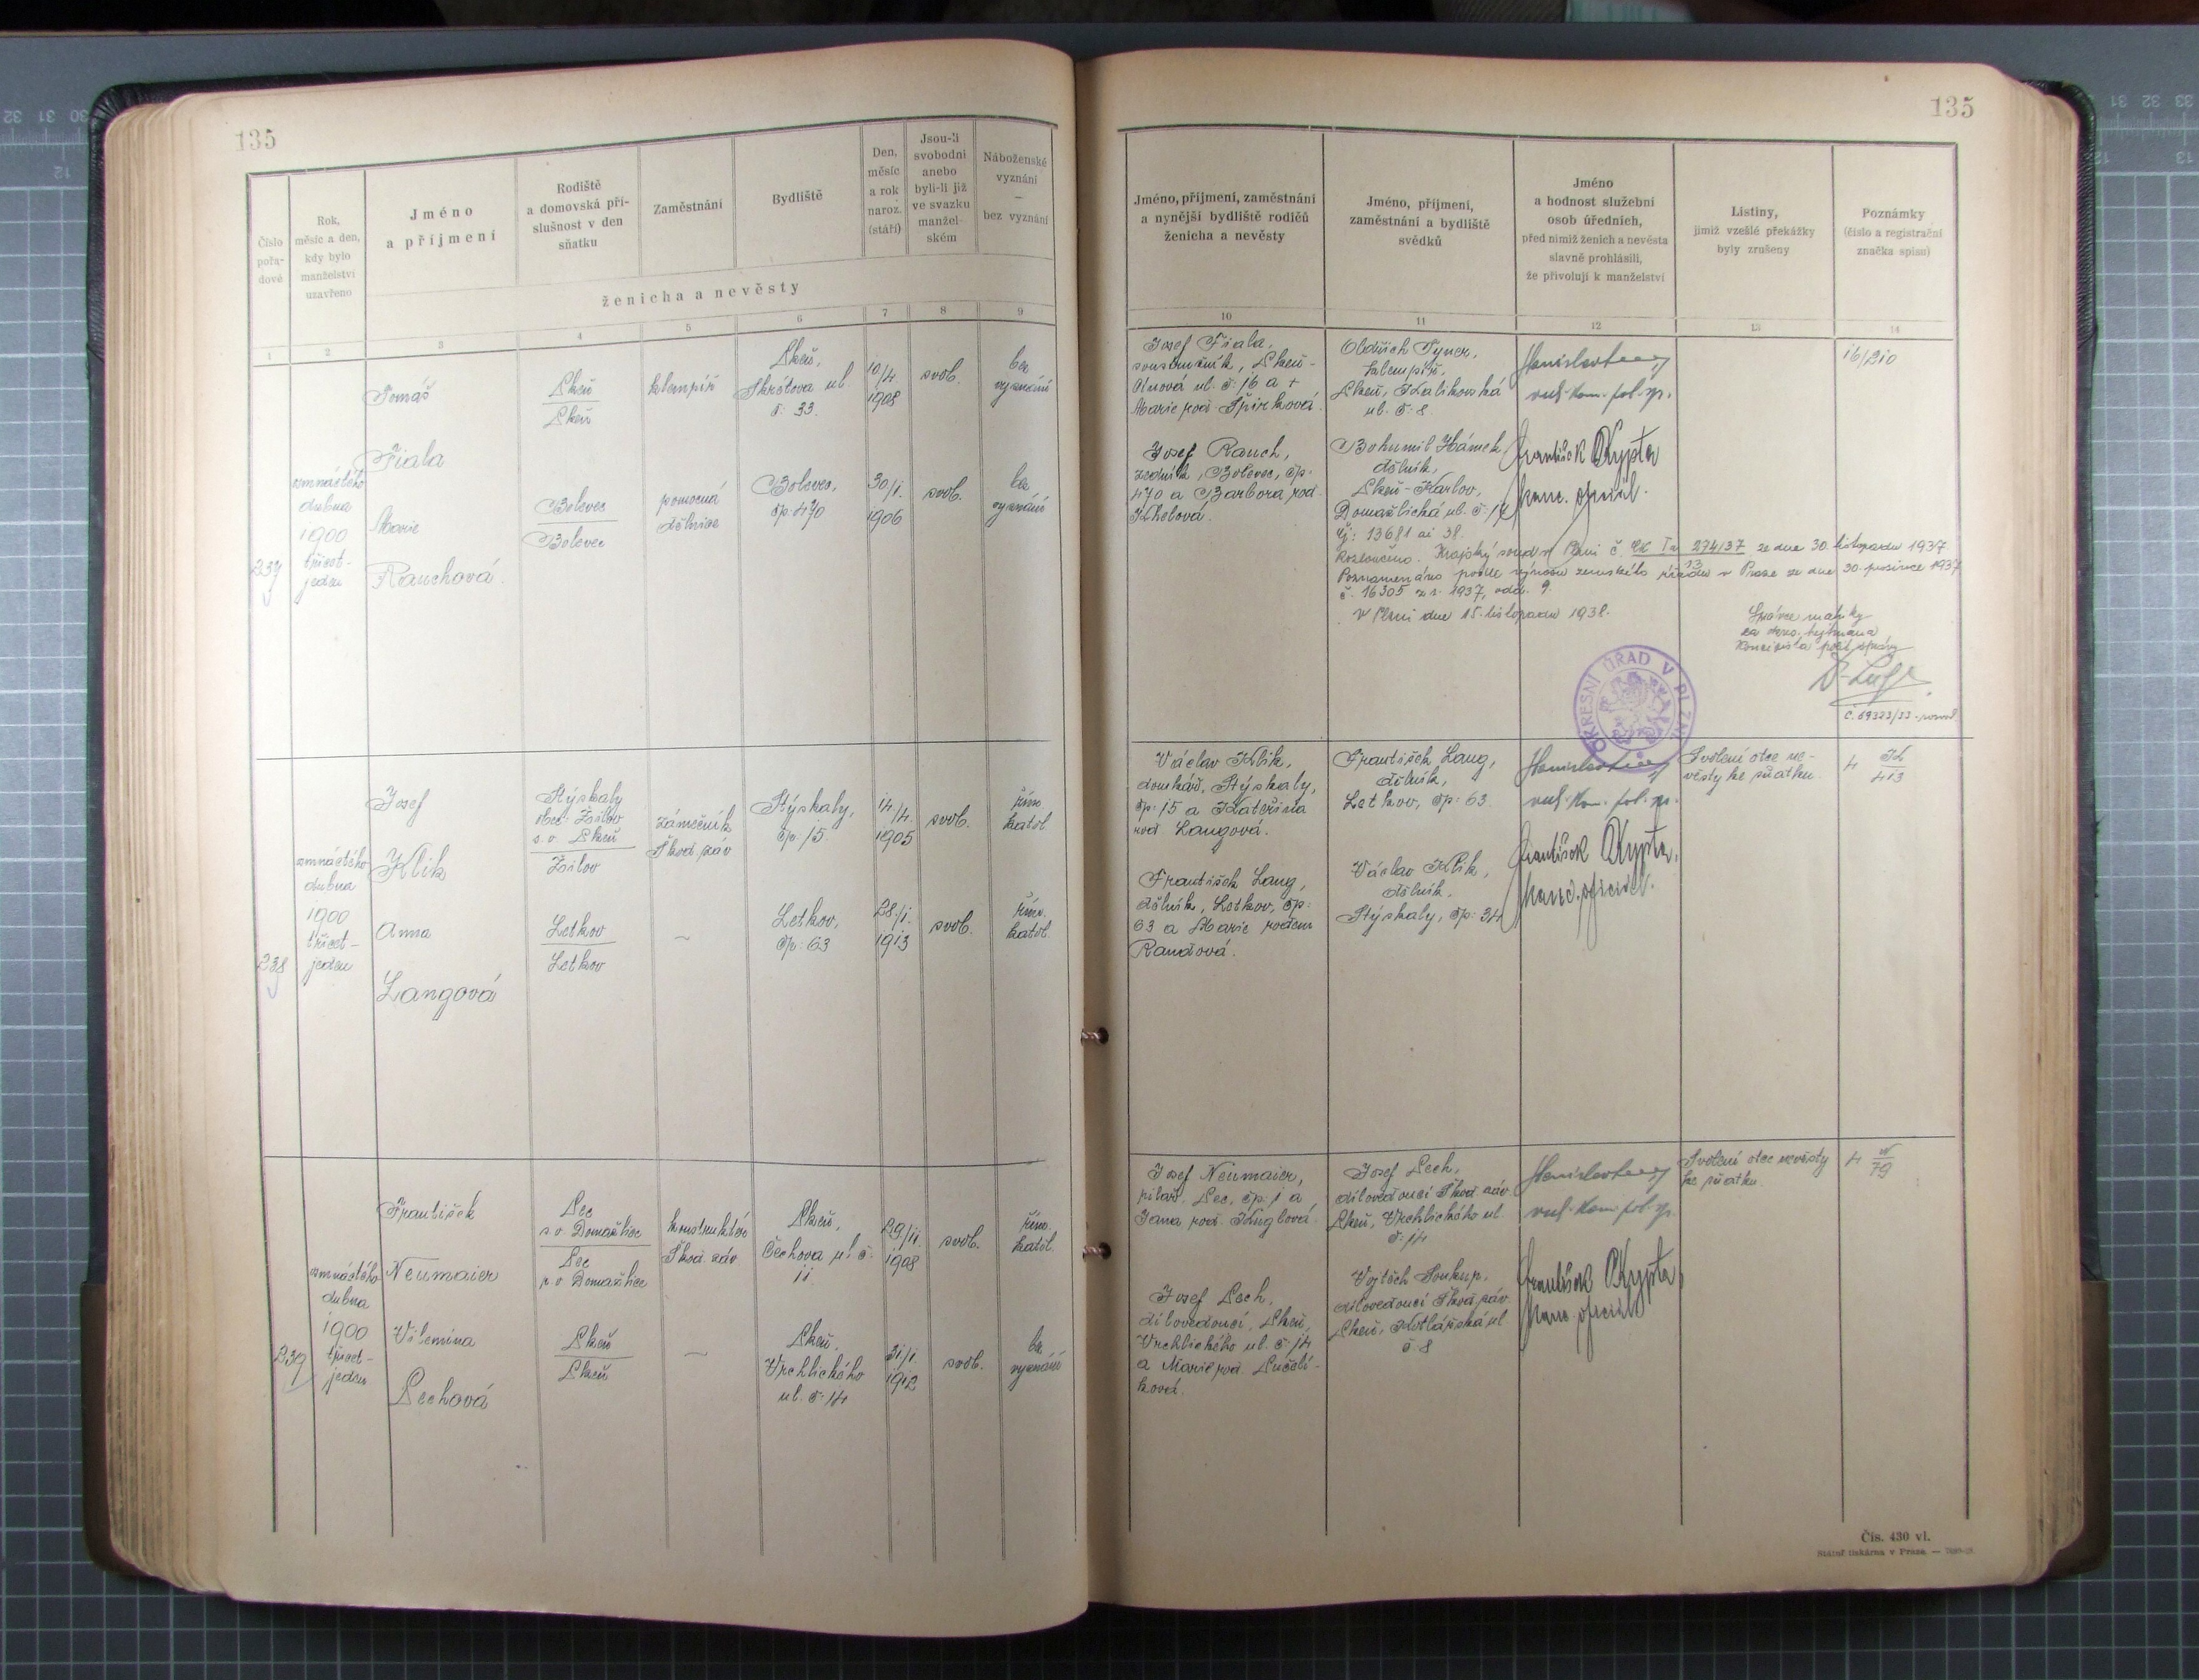 135
135
Číslo
pořa-
dové
Rok,
měsíc a den,
kdy bylo
manželství
uzavřeno
Jméno
a příjmení
Rodiště
a domovská pří-
slušnost v den
sňatku
Zaměstnání
Bydliště
Den,
měsíc
a rok
naroz.
(stáří)
Jsou-li
svobodni
anebo
byli-li již
ve svazku
manžel-
ském
Náboženské
vyznání
—
bez vyznání
ženicha a nevěsty
Jméno, příjmení, zaměstnání
a nynější bydliště rodičů
ženicha a nevěsty
Jméno, příjmení,
zaměstnání a bydliště
svědků
Jméno
a hodnost služební
osob úředních,
před nimiž ženich a nevěsta
slavně prohlásili,
že přivolují k manželství
Listiny,
jimiž vzešlé překážky
byly zrušeny
Poznámky
(číslo a registrační
značka spisu)
1 2 3 4 5 6 7 8 9 10 11 12 13 14
237
osmnáctého
dubna
1900
třicet-
jeden
Tomáš
Fiala
Plzeň
Plzeň
klempíř
Plzeň,
Skrétova ul.
č: 33.
10/4.
1908
svob.
bez
vyznání
Marie
Rauchová
Bolevec
Bolevec
pomocná
dělnice
Bolevec,
čp: 470
30/1.
1906
svob.
bez
vyznání
Josef Fiala,
soustružník, Plzeň-
ul. č: 16 a +
Marie roz. Špirková.
Josef Rauch,
zedník, Bolevec, čp:
470 a Barbora roz.
Khelová.
Oldřich Tyner,
klempíř,
Plzeň, Kalikovská
ul. č: 8.
Bohumil Hámek
dělník,
Plzeň-Karlov,
Domažlická ul. č: 14
František Krypta
kanc. oficiál.
16/210
Čj: 13681 ai 38.
Rozloučeno. Krajský soud v Plzni č. Ck Ia 274/37 ze dne 30. listopadu 1937.
Poznamenáno podle výnosu zemského úřadu v Praze ze dne 30. prosince 1937
č. 16305 z r. 1937, odd. 9.
V Plzni dne 15. listopadu 1938.
Správce matriky
za okres. hejtmana
OKRESNÍ ÚŘAD V PLZNI
č. 69323/33
238
osmnáctého
dubna
1900
třicet-
jeden
Josef
Klik
Stýskaly
obec: Žilov
s.o. Plzeň
Žilov
zámečník
Škod. záv
Stýskaly,
čp: 15.
14./4.
1905
svob.
řím.
katol.
Anna
Langová
Letkov
Letkov
~
Letkov,
čp: 63
28/1.
1913
svob.
řím.
katol
Václav Klik,
domkář, Stýskaly,
čp: 15 a Kateřina
roz. Langová.
František Lang,
dělník, Letkov, čp:
63 a Marie rozem
Randová.
František Lang,
dělník,
Letkov, čp: 63.
Václav Klik,
dělník.
Stýskaly, čp: 34
František Krypta,
kanc. oficiál.
Svolení otce ne-
věsty ke sňatku.
4 K
413
239
osmnáctého
dubna
1900
třicet-
jeden
František
Neumaier
Pec
s.o. Domažlice
Pec
s.o. Domažlice
konstruktér
Škod. záv
Plzeň,
Čechova ul. č:
11.
29/11.
1908
svob.
řím.
katol.
Vilemína
Pechová
Plzeň
Plzeň
~
Plzeň,
Vrchlického
ul. č: 14
31/1.
1912
svob.
bez
vyznání
Josef Neumaier,
pilař. Pec, čp: 1 a
Jana roz. Kuglová.
Josef Pech,
dílovedoucí, Plzeň,
Vrchlického ul. č: 14
a Marie roz. Pučelí-
ková.
Josef Pech,
dílovedoucí Škod. záv.
Plzeň, Vrchlického ul.
č: 14
Vojtěch Soukup,
dílovedoucí Škod. záv.
Plzeň, Kotlářská ul
č: 8
František Krypta
kanc. oficiál
Svolení otce nevěsty
ke sňatku.
4 N
79
Čís. 430 vl.
Státní tiskárna v Praze. —